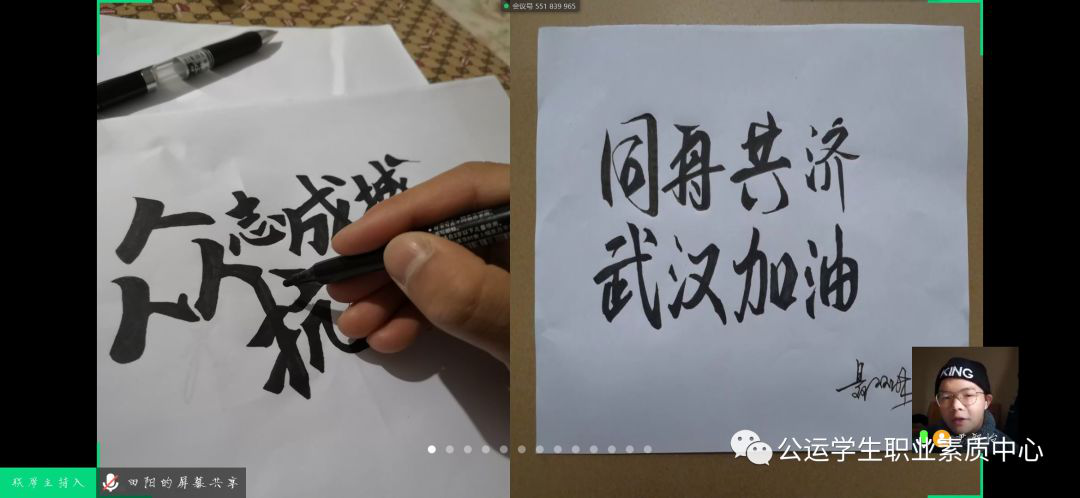 会议号 551 839 965
众志成城
抗
同舟共济
武汉加油
KING
田阳的屏幕共享
公运学生职业素质中心